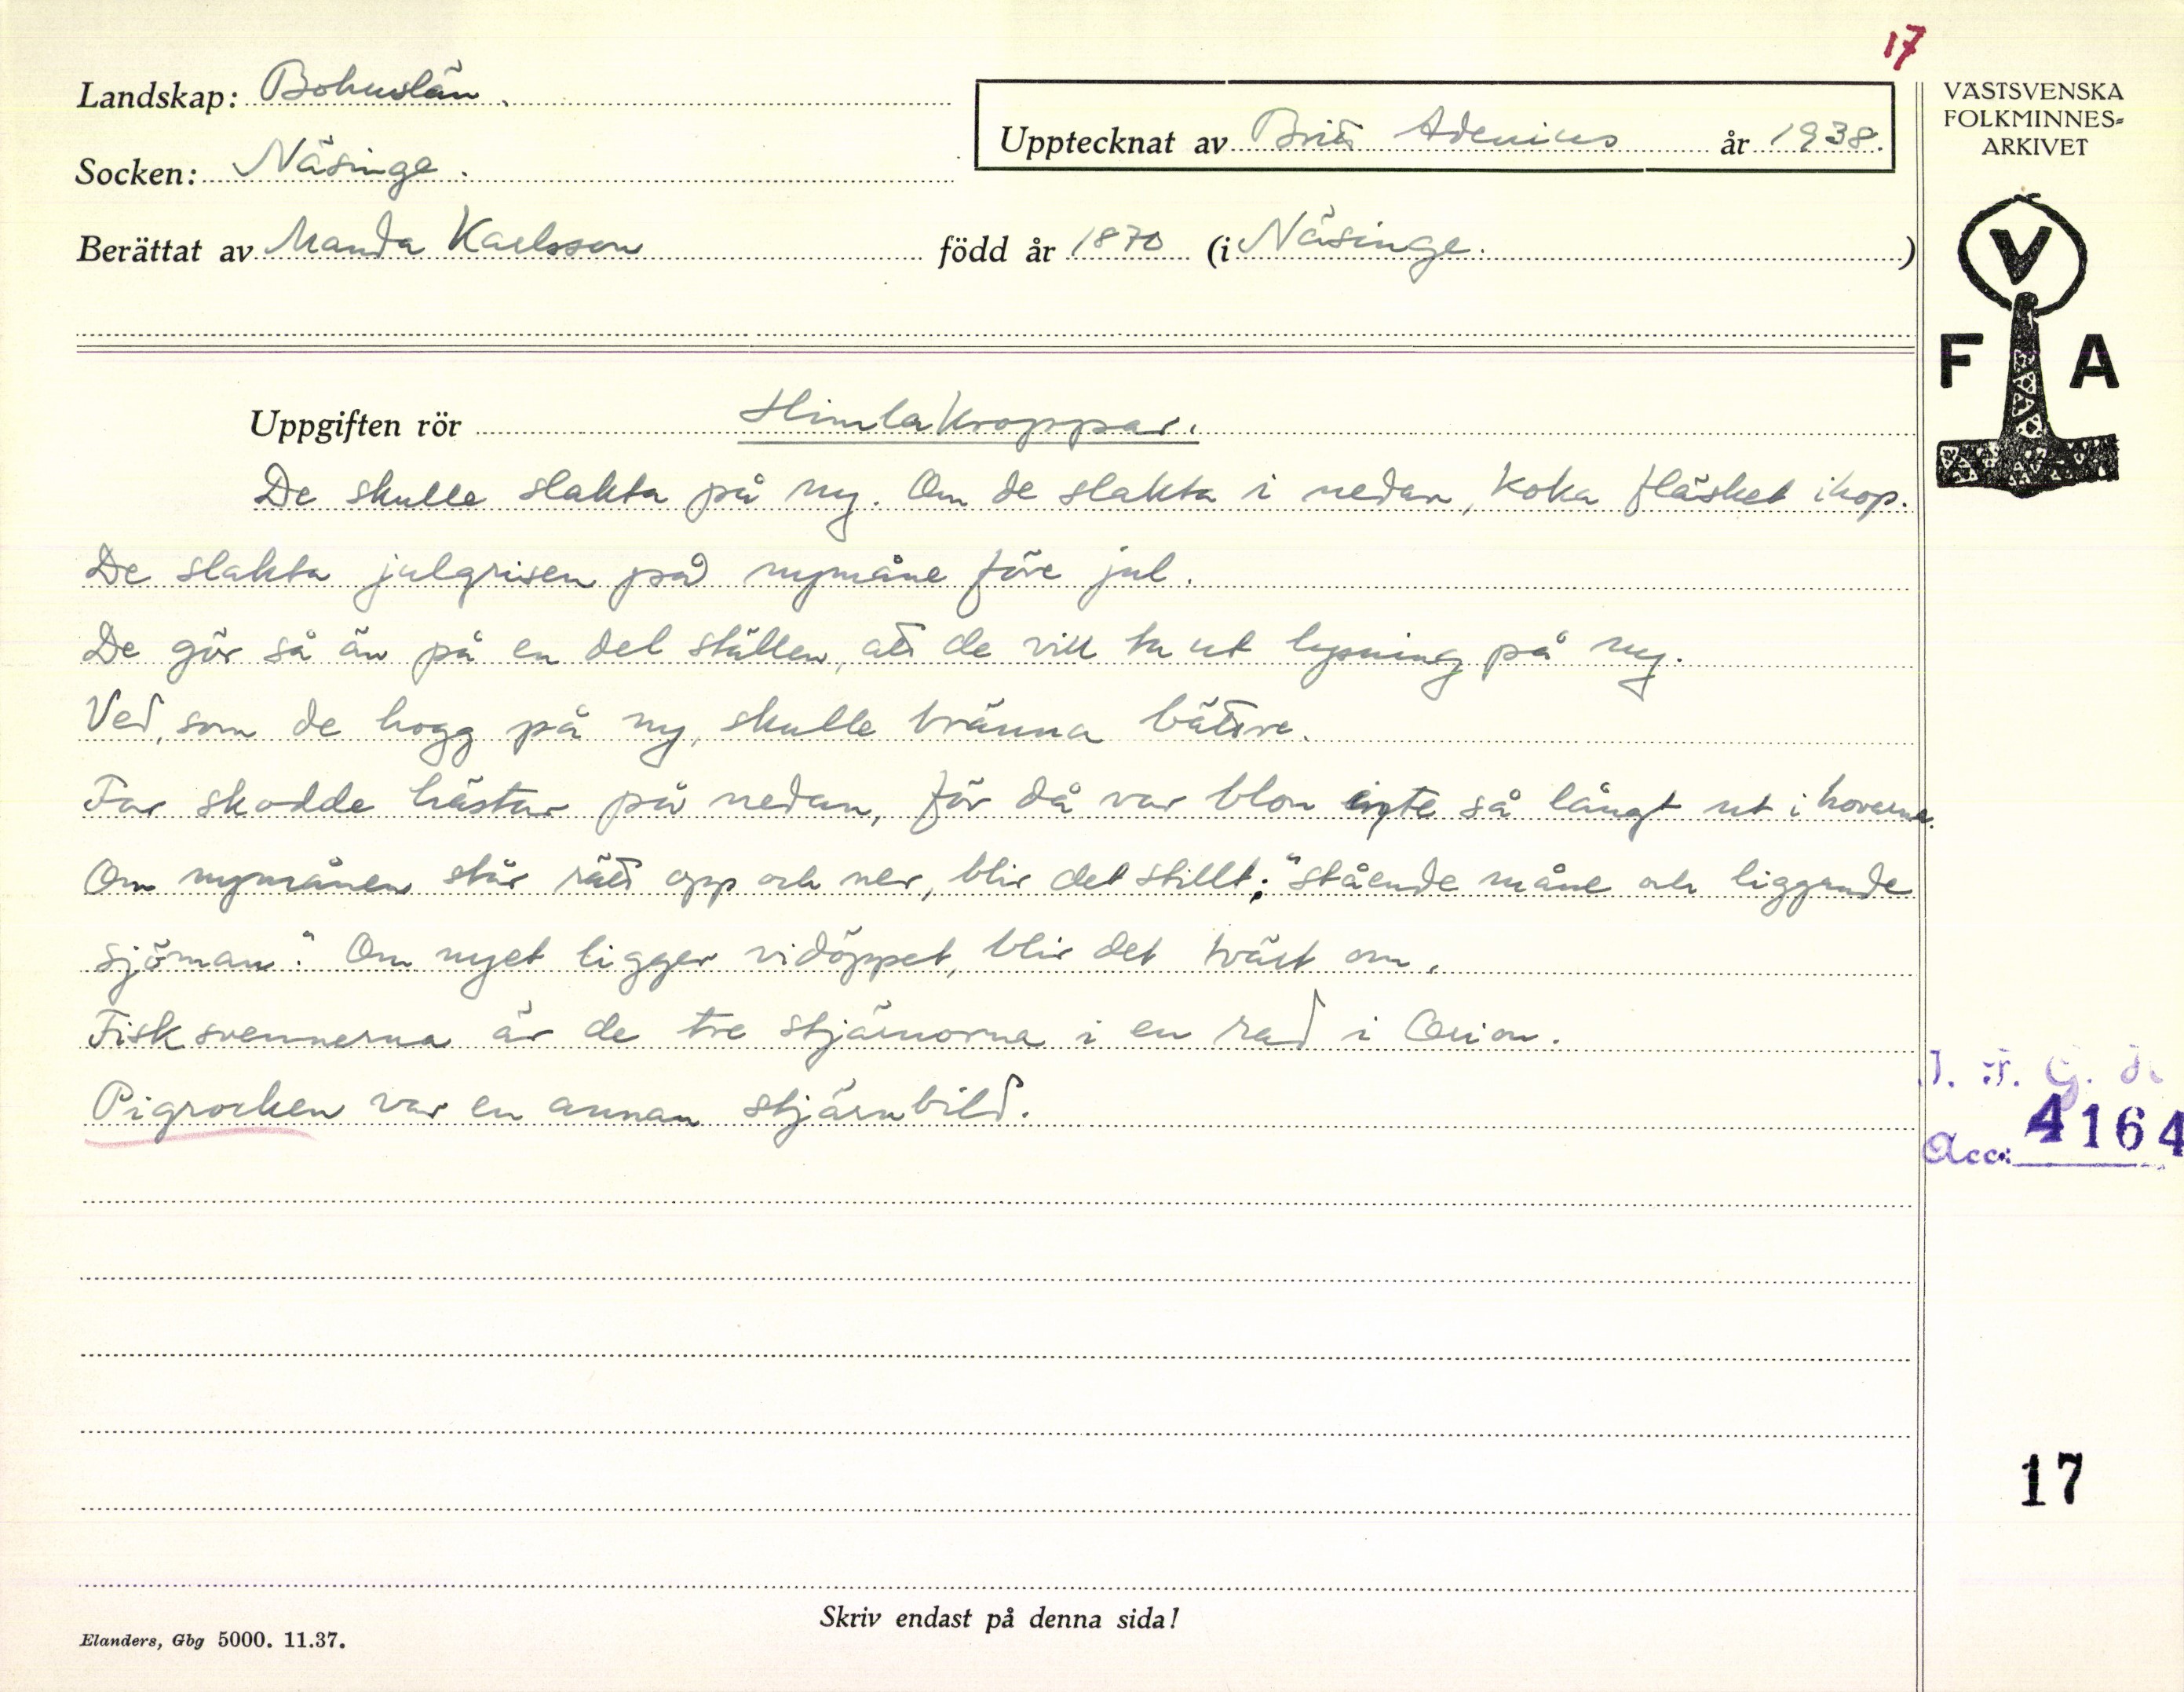 17
Landskap: Bohuslän.
Socken: Näsinge.
Upptecknat av Britt Adenius år 1938.
Berättat av Manda Karlsson född år 1870 (i Näsinge. )
VÄSTSVENSKA
FOLKMINNES-
ARKIVET
V
F A
Uppgiften rör Himlakroppar.
De skulle slakta på ny. Om de slakta i nedan, koka fläsket ihop.
De slakta julgrisen på nymåne före jul.
De gör så än på en del ställen, att de vill ta ut lysning på ny.
Ved, som de hogg på ny, skulle bränna bättre.
Far skodde hästar på nedan, för då var blon inte så långt ut i hovarna.
Om nymånen står rätt opp och ner, blir det stillt; "stående måne och liggande
sjöman". Om nyet ligger vidöppet, blir det tvärt om.
Fisksvennerna är de tre stjärnorna i en rad i Orion.
Pigrocken var en annan stjärnbild.
I. F. G.
Acc: 4164
17
Skriv endast på denna sida!
Elanders, Gbg 5000. 11.37.